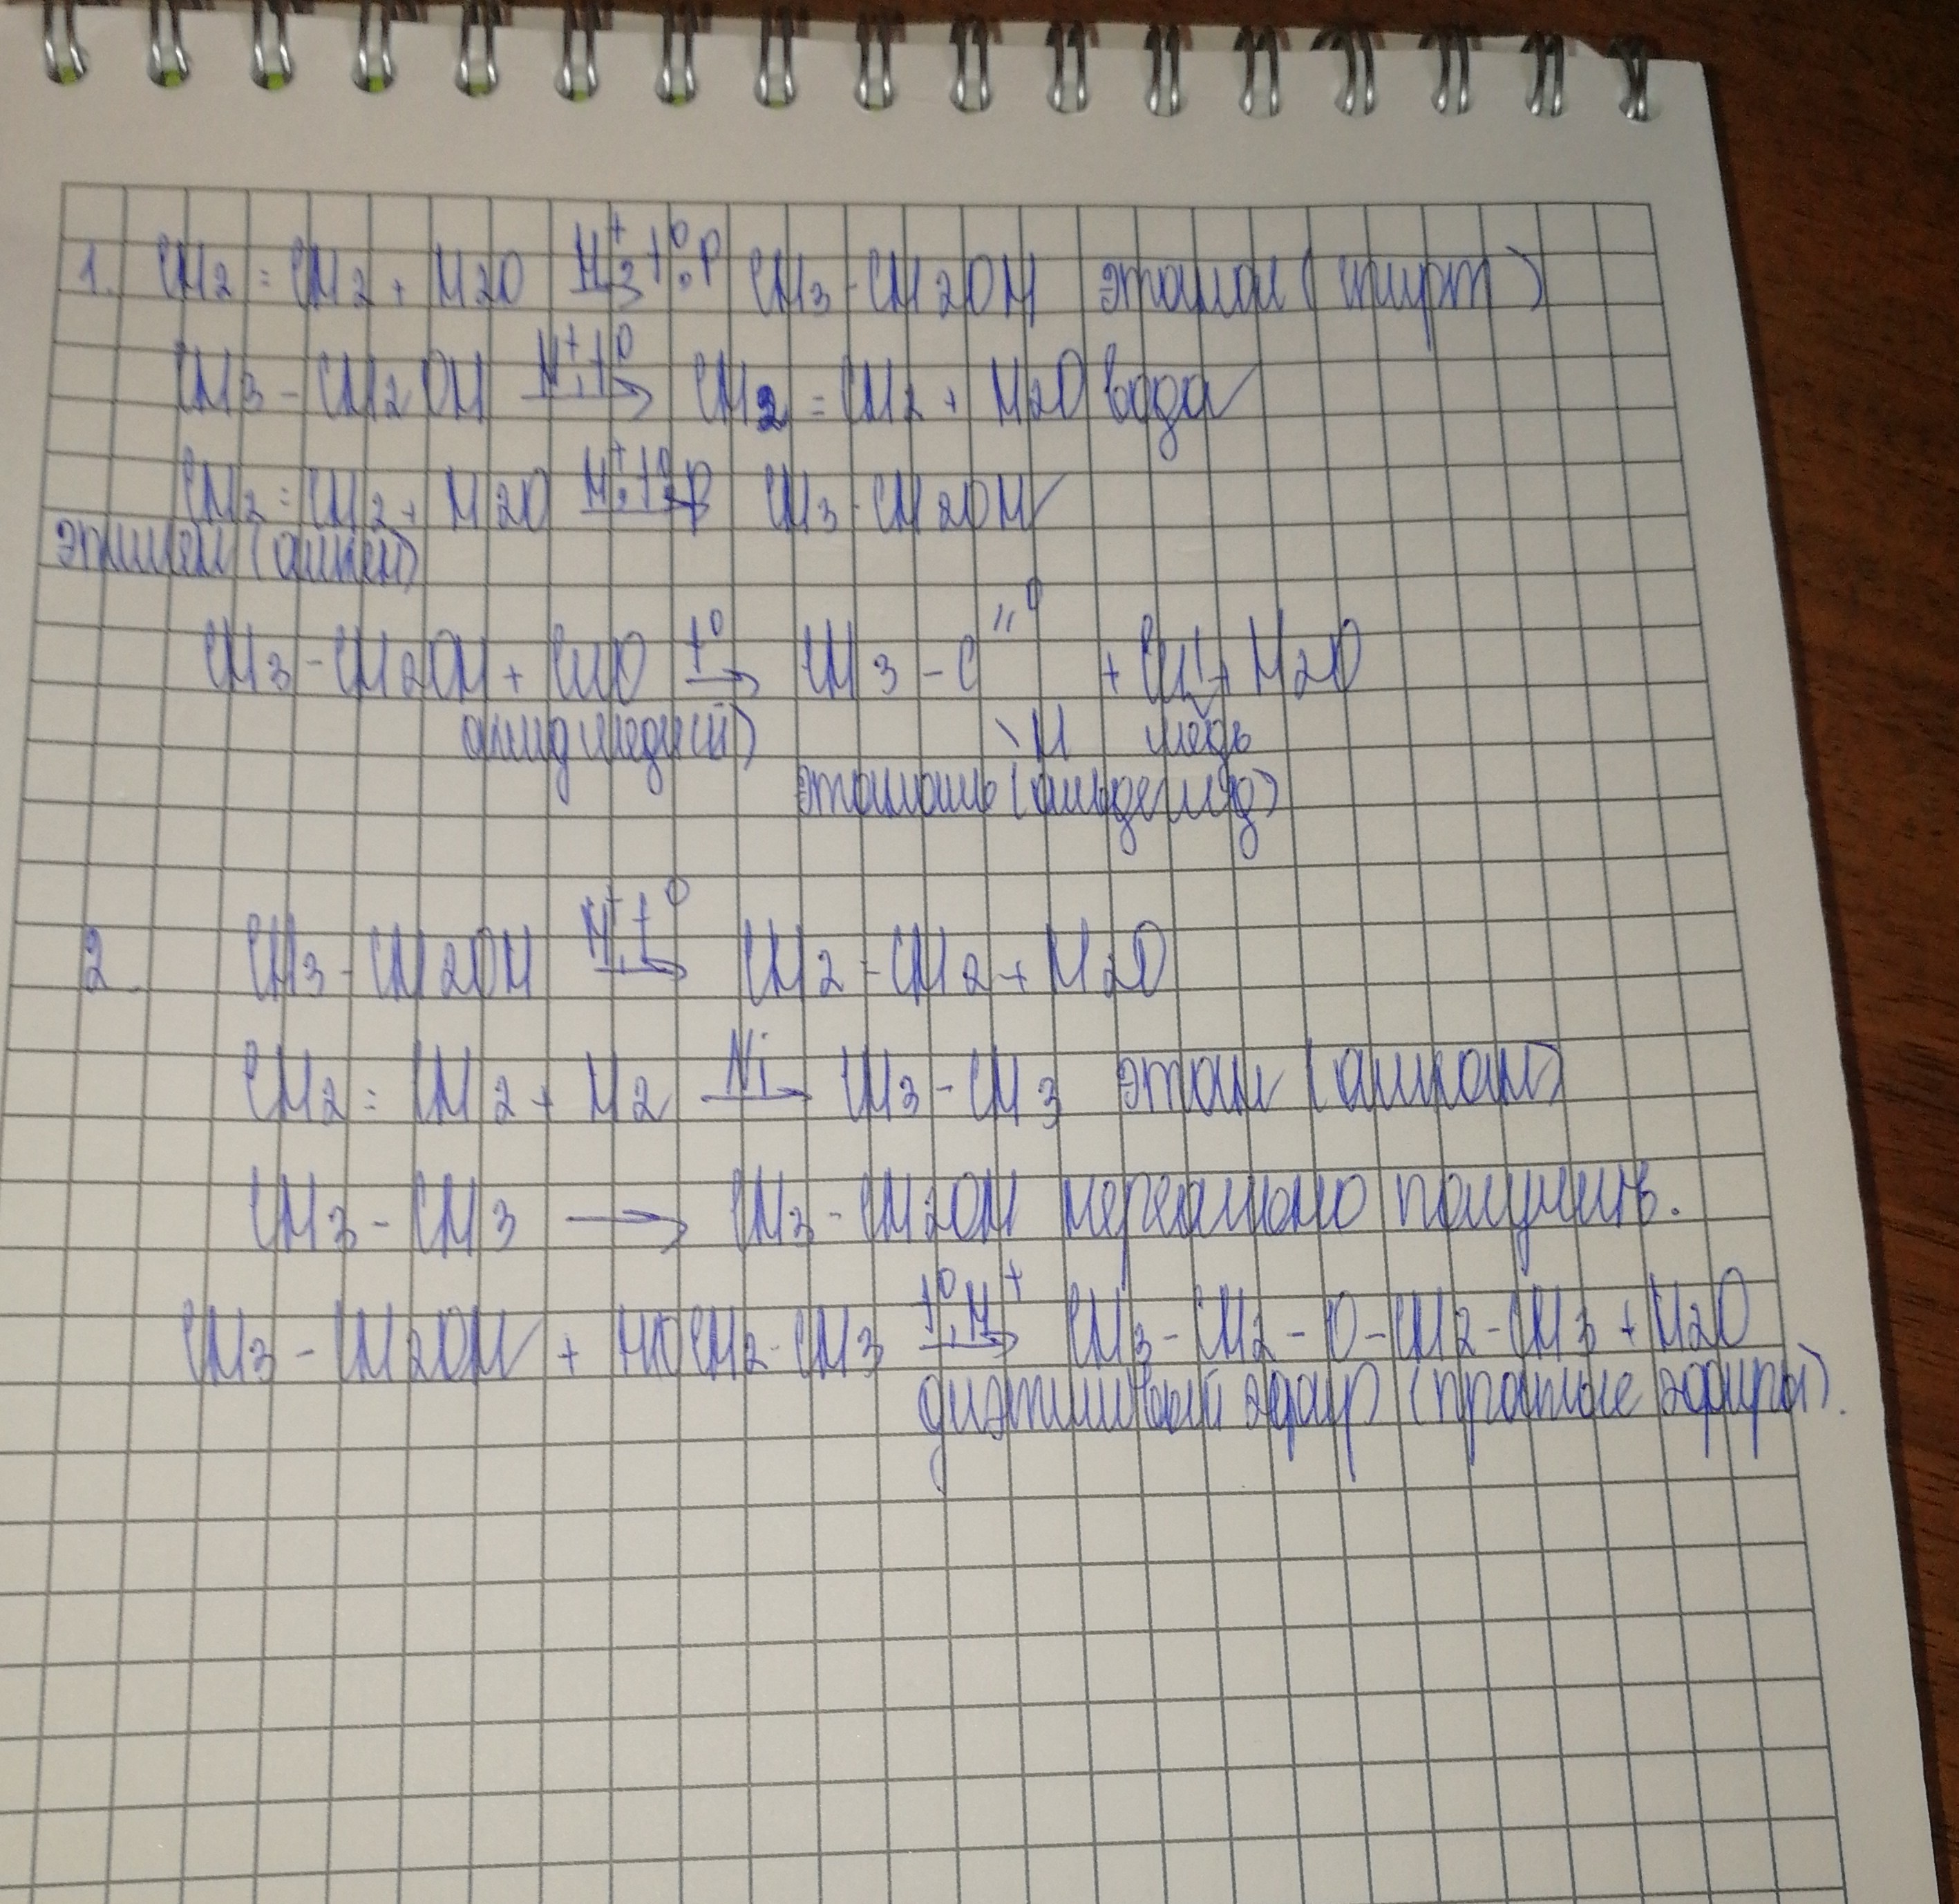 1. CH2 = CH2 + H2O H+, t°, P CH3 - CH2OH этанол (спирт)
CH3 - CH2OH H+, t° → CH2 = CH2 + H2O вода
CH2 = CH2 + H2O H+, t°, P CH3 - CH2OH
этилен (алкен)
CH3 - CH2OH + CuO t° → CH3 - C "O + Cu + H2O
оксид меди (II) \H медь
этаналь (альдегид)
2. CH3 - CH2OH H+, t° → CH2 - CH2 + H2O
CH2 = CH2 + H2 Ni → CH3 - CH3 этан (алкан)
CH3 - CH3 → CH3 - CH2OH нереально получить.
CH3 - CH2OH + HOCH2 - CH3 t°, H+ → CH3 - CH2 - O - CH2 - CH3 + H2O
диэтиловый эфир (простые эфиры).